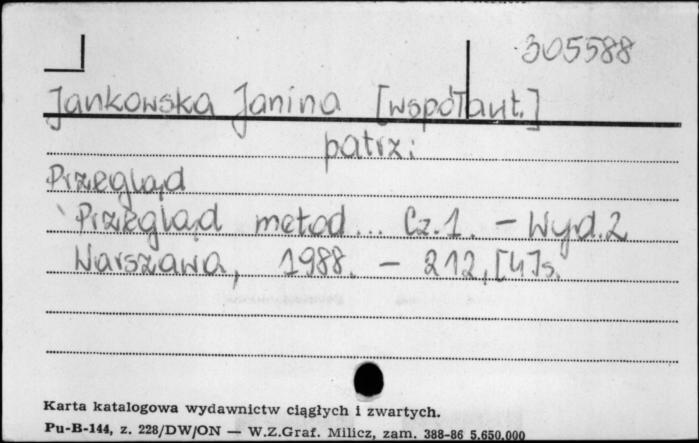 305588
Jankowska Janina [współaut.]
patrz:
Przegląd
Przegląd metod... Cz.1. - Wyd.2
Warszawa, 1988. - 212,[4]s.
Karta katalogowa wydawnictw ciągłych i zwartych.
Pu-B-144, z. 228/DW/ON — W.Z.Graf. Milicz, zam. 388-86 5.650.000